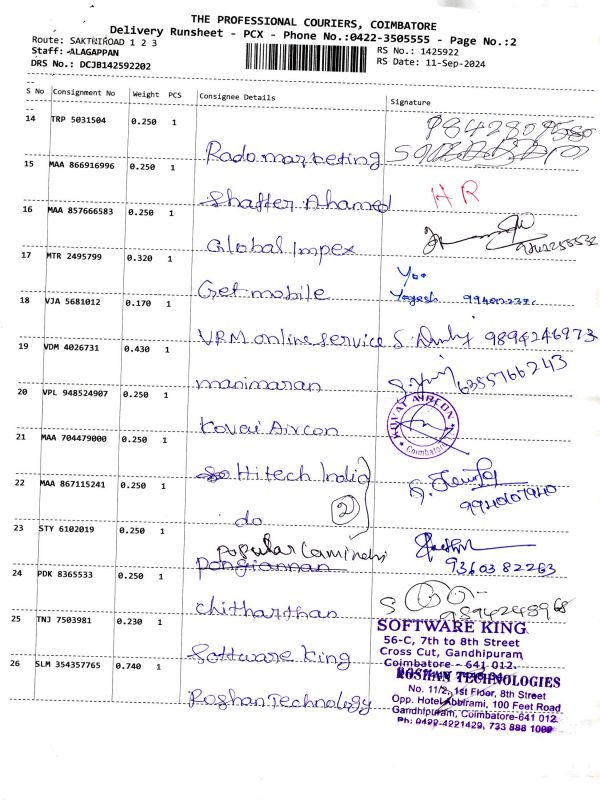 THE PROFESSIONAL COURIERS, COIMBATORE
Delivery Runsheet - PCX - Phone No.:0422-3505555 - Page No.:2
Route: SAKTHIROAD 1 2 3
RS No.: 1425922
Staff: ALAGAPPAN
RS Date: 11-Sep-2024
DRS No.: DCJB142592202
S No Consignment No Weight PCS Consignee Details Signature
14 TRP 5031504 0.250 1 Rado marketing
15 MAA 866916996 0.250 1 Shaffer Ahamed HR
16 MAA 857666583 0.250 1 Global Impex
17 MTR 2495799 0.320 1 Get mobile Yogesh
18 VJA 5681012 0.170 1 VRM online service 9894246973
19 VDM 4026731 0.430 1 manimaran 6385766243
20 VPL 948524907 0.250 1 Kovai Aircon KOVAI AIRCON Coimbatore
21 MAA 704479000 0.250 1 Hitech India
22 MAA 867115241 0.250 1 do (2) 9940107940
23 STY 6102019 0.250 1 Popular Laminets 9360382263
24 PDK 8365533 0.250 1 Chitharthan 9894248968
25 TNJ 7503981 0.230 1 Software King
SOFTWARE KING
56-C, 7th to 8th Street
Cross Cut, Gandhipuram
Coimbatore - 641 012.
26 SLM 354357765 0.740 1 Roshan Technology
ROSHAN TECHNOLOGIES
No. 11/2, 1st Floor, 8th Street
Opp. Hotel Abbirami, 100 Feet Road
Gandhipuram, Coimbatore-641 012
Ph: 0422-4221429, 733 888 1000